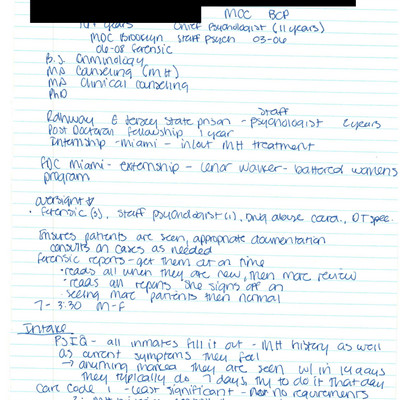 MDC BCP
14+ years Chief Psychologist (11 years)
MDC Brooklyn Staff Psych 03-06
06-08 forensic
B.S. Criminology
MA Counseling (MH)
MA Clinical counseling
PhD
Staff
Rahway E Jersey State prison - psychologist 2 years
Post Doctoral Fellowship 1 year
Internship - Miami - in/out MH treatment
FDC Miami - externship - Lenor Walker - battered womens
program
oversight
• Forensic (3), Staff psychologist (1), Drug abuse coord., DT spec.
Ensures patients are seen, appropriate documentation
consults on cases as needed
Forensic reports - get them out on time
• reads all when they are new, then more review
• reads all reports she signs off on
seeing more patients then normal
7 - 3:30 M-F
Intake
PSIQ - all inmates fill it out - MH history as well
as current symptoms they feel
→ anything marked they are seen w/in 14 days
they typically do 7 days, try to do it that day
Care Code 1 - least significant - no requirements